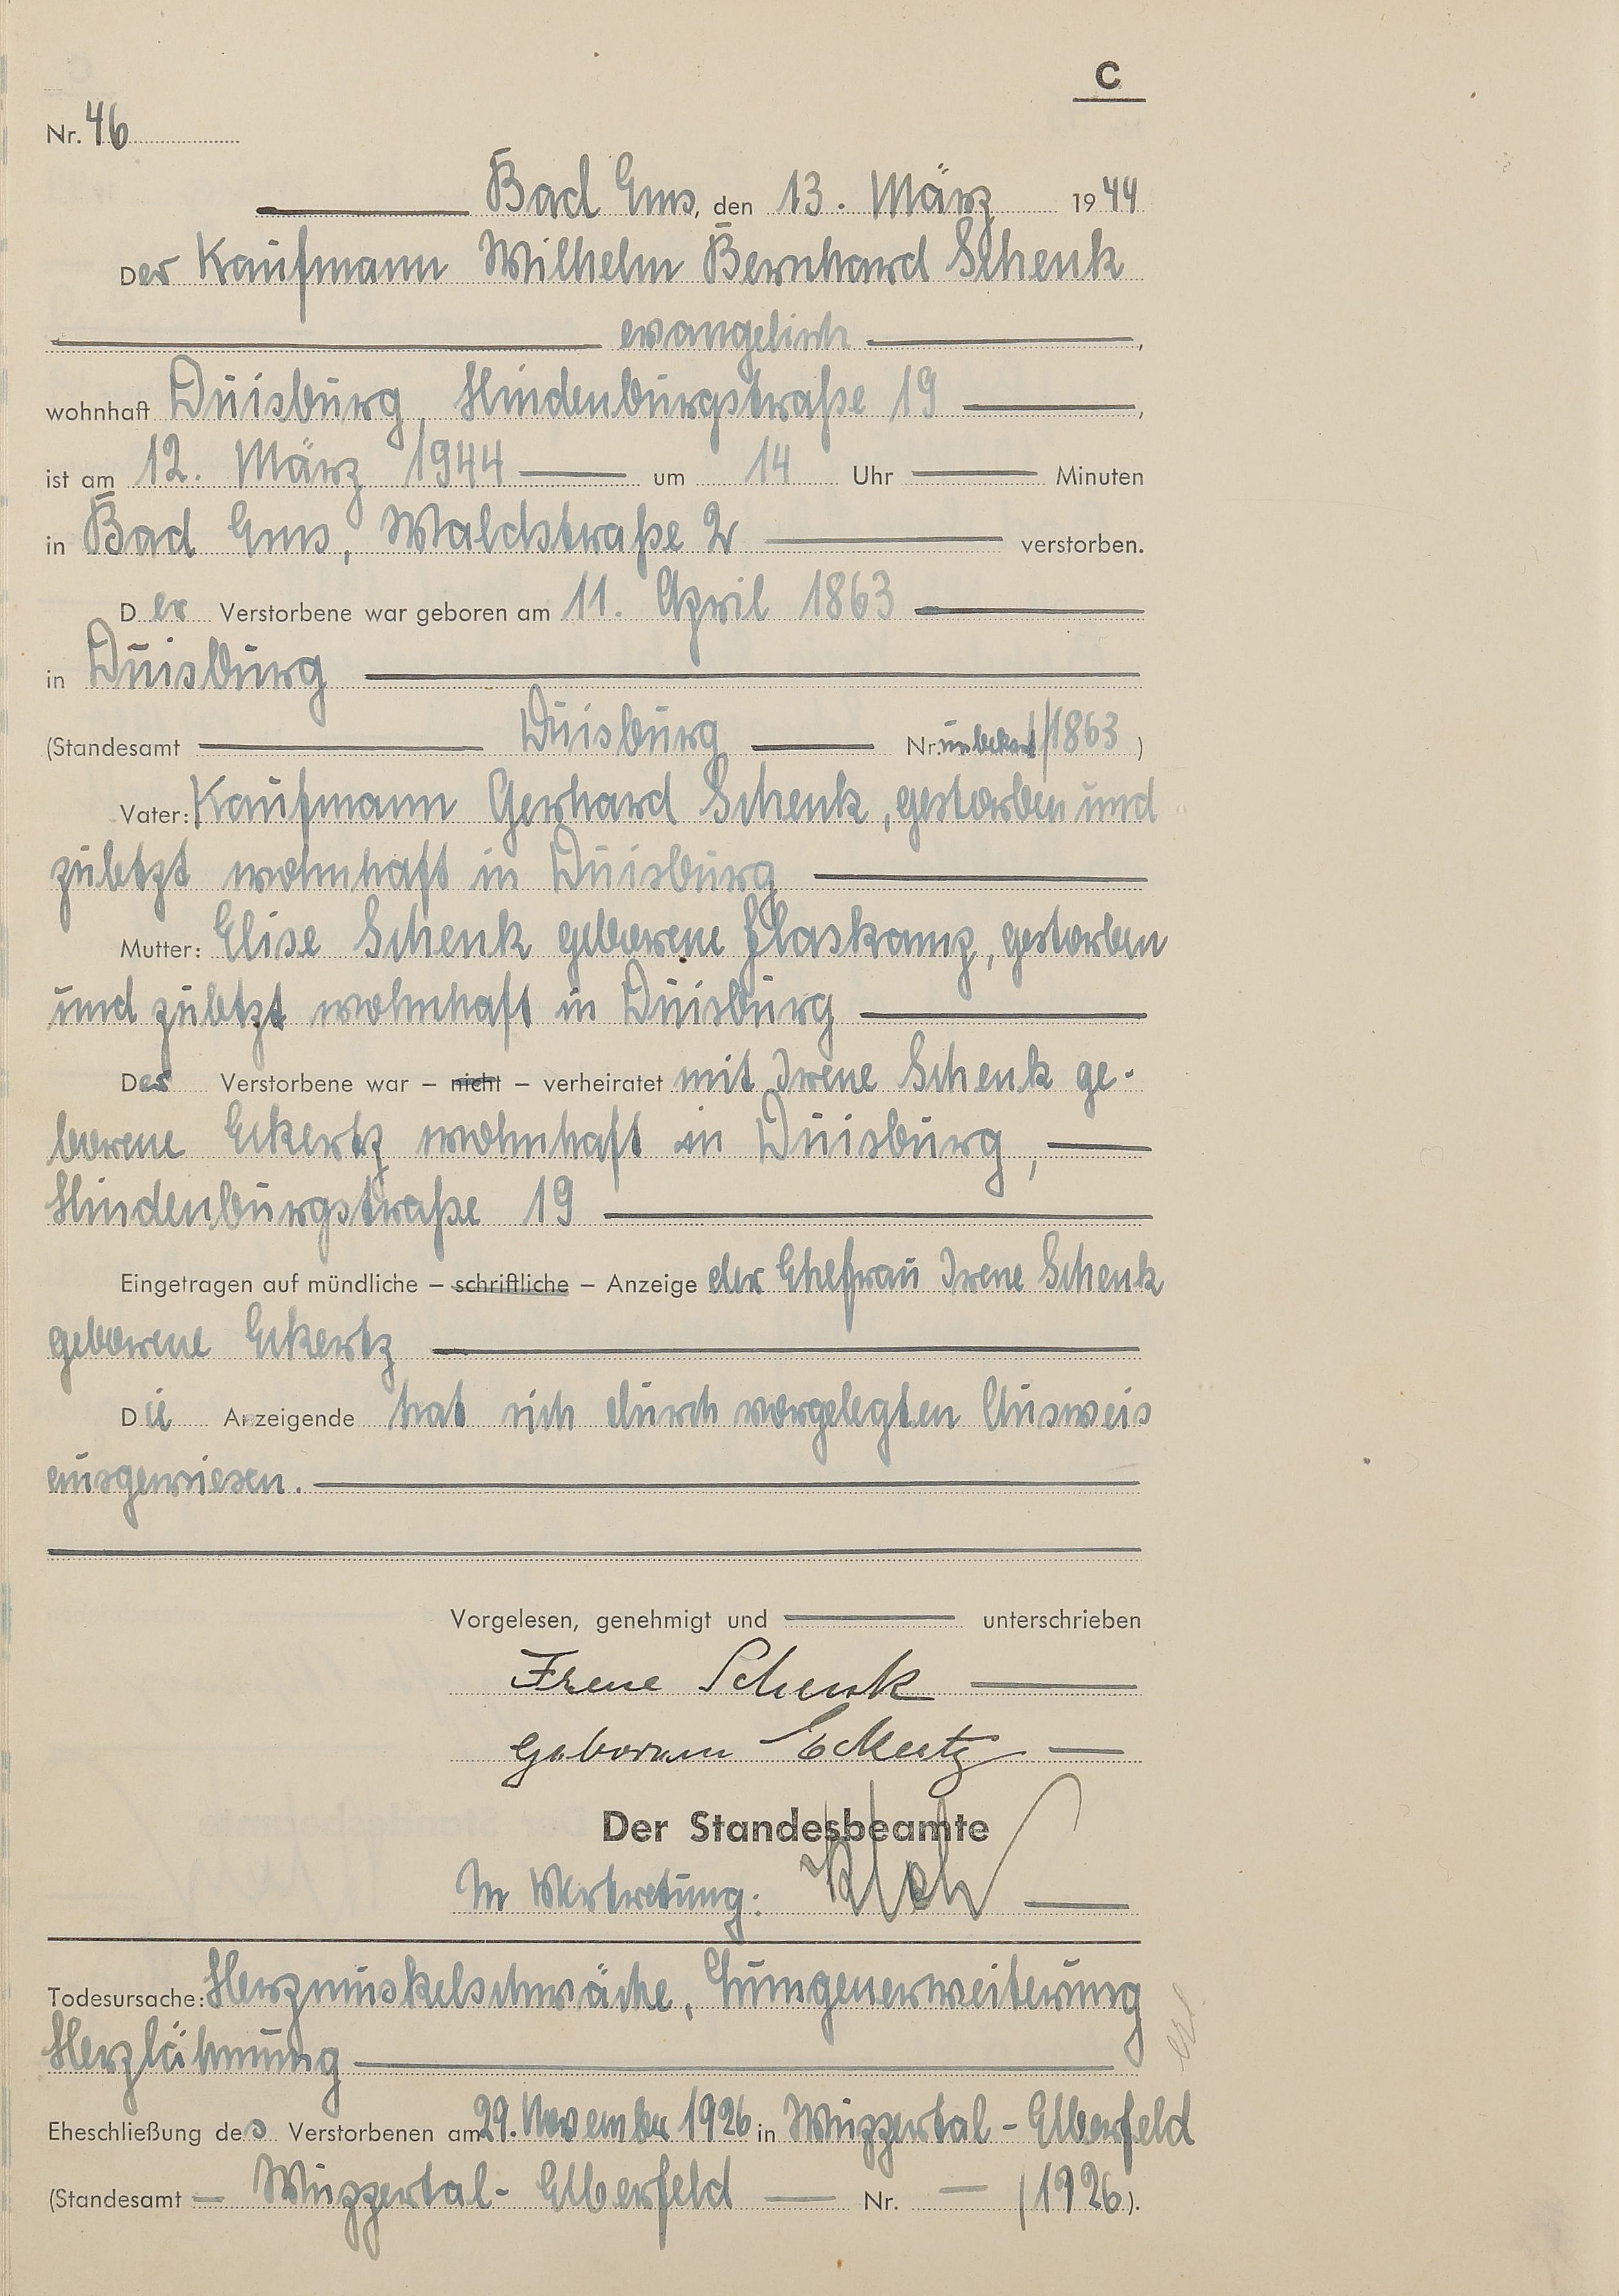 C
Nr. 46
Bad Ems, den 13. März 1944
Der Kaufmann Wilhelm Bernhard Schenk
evangelisch,
wohnhaft Duisburg, Hindenburgstraße 19,
ist am 12. März 1944 um 14 Uhr Minuten
in Bad Ems, Waldstraße 2 verstorben.
Der Verstorbene war geboren am 11. April 1863
in Duisburg
(Standesamt Duisburg Nr. unbekannt/1863)
Vater: Kaufmann Gerhard Schenk, gestorben und
zuletzt wohnhaft in Duisburg
Mutter: Elise Schenk geborene Flaskamp, gestorben
und zuletzt wohnhaft in Duisburg
Der Verstorbene war – nicht – verheiratet mit Irene Schenk ge-
borene Eckertz wohnhaft in Duisburg,
Hindenburgstraße 19
Eingetragen auf mündliche – schriftliche – Anzeige der Ehefrau Irene Schenk
geborene Eckertz
Die Anzeigende hat sich durch vorgelegten Ausweis
ausgewiesen.
Vorgelesen, genehmigt und unterschrieben
Irene Schenk
geborene Eckertz
Der Standesbeamte
In Vertretung:
Todesursache: Herzmuskelschwäche, Lungenerweiterung
Herzlähmung
Eheschließung des Verstorbenen am 29. November 1926 in Wuppertal-Elberfeld
(Standesamt Wuppertal-Elberfeld Nr. — /1926).